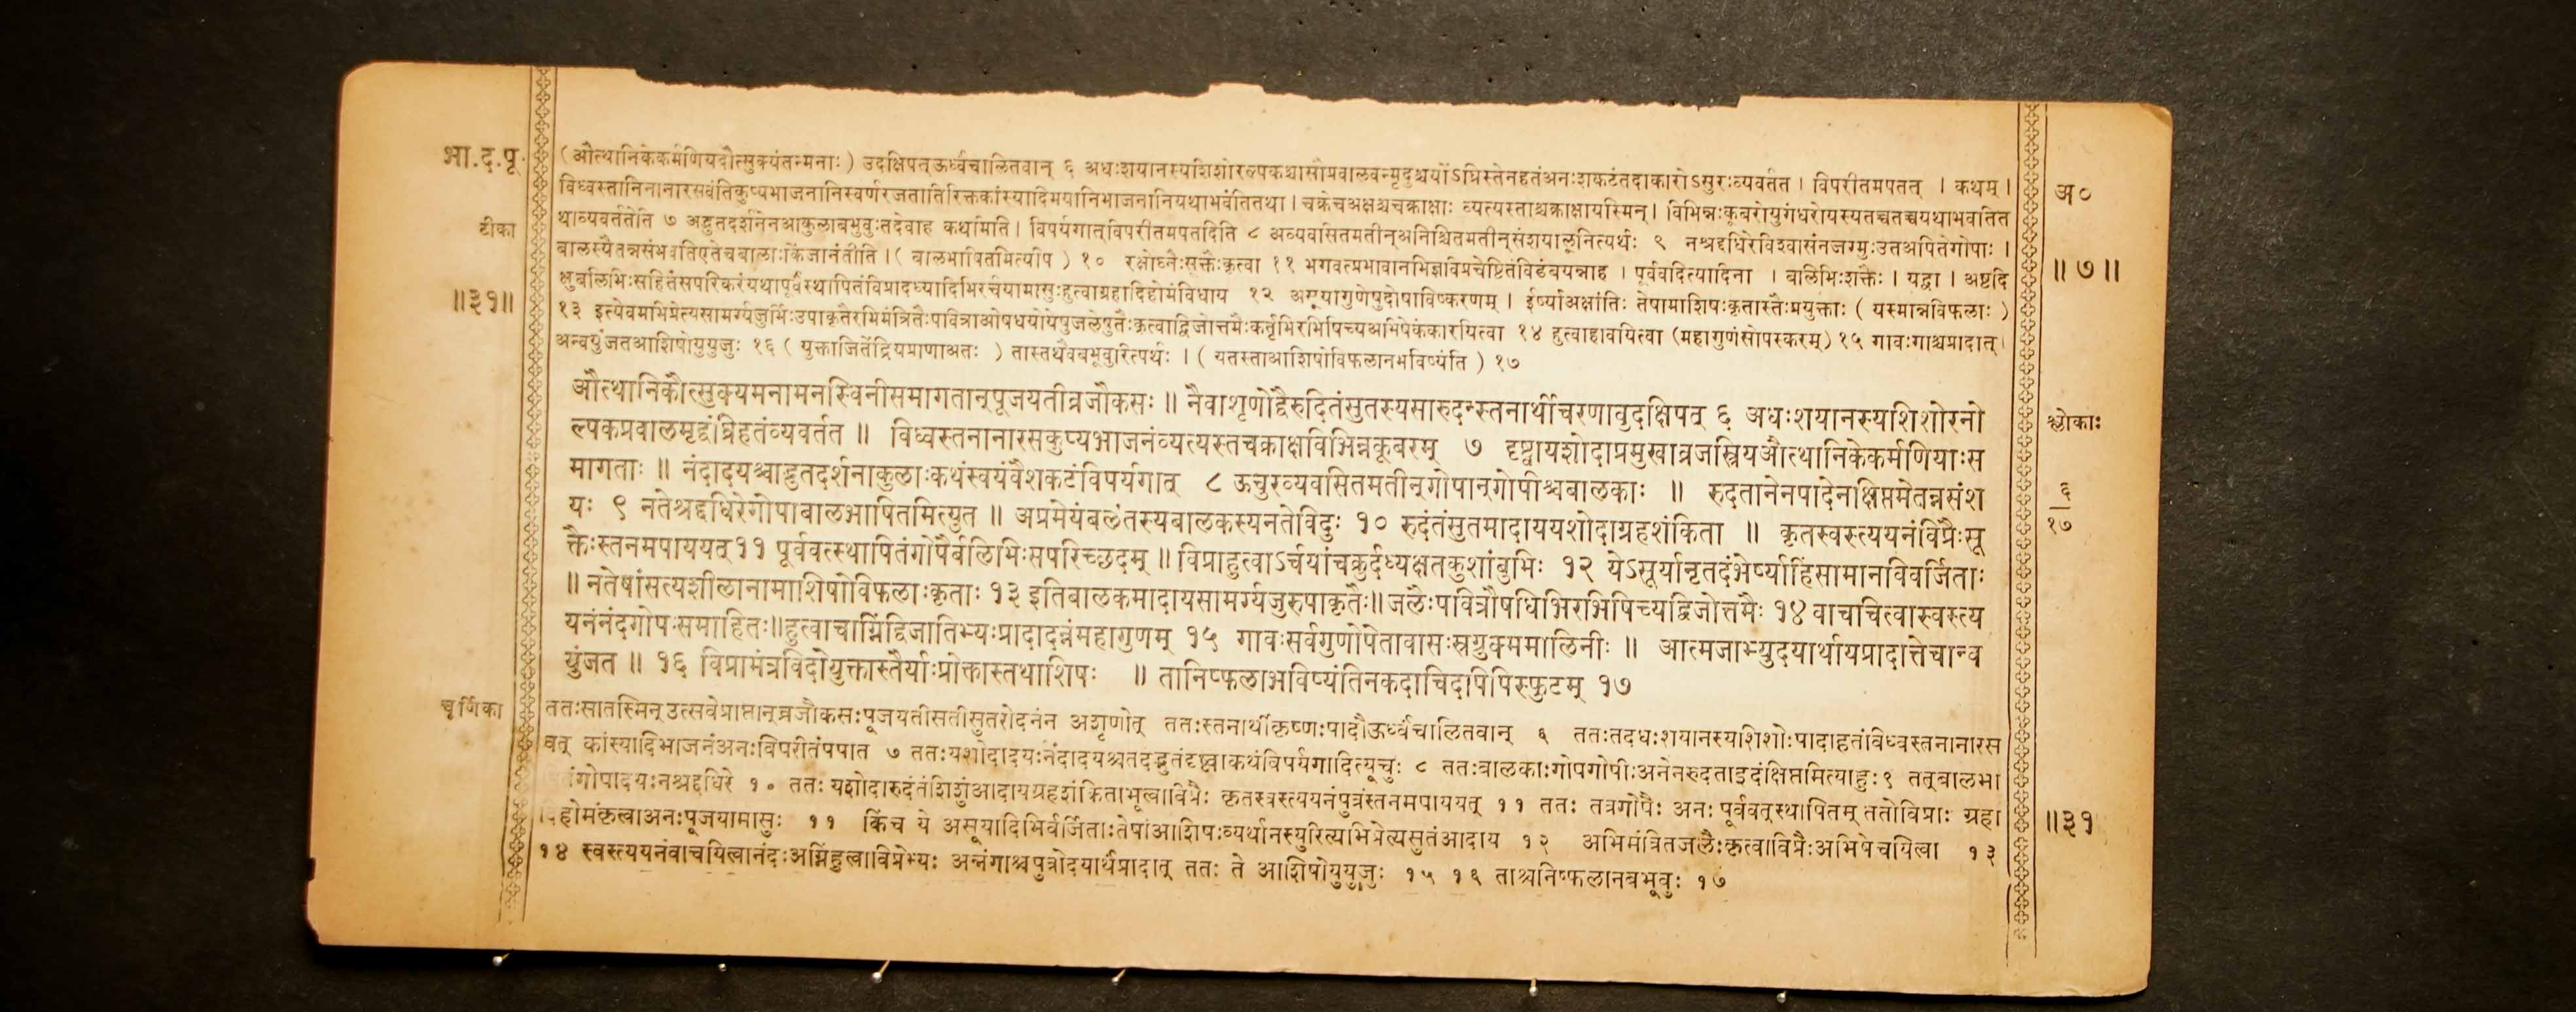 भा.द.पू.
(औत्थानिकेकर्मणियदौत्सुक्यंतन्मनाः) उदक्षिपत्ऊर्ध्वंचालितवान् ६ अधःशयानस्यशिशोरल्पकश्चासौप्रवालवन्मृदुश्चयोंऽघ्रिस्तेनहतंअनःशकटंतदाकारोऽसुरःव्यवर्तत । विपरीतमपतत् । कथम् ।
विध्वस्तानिनानारसवंतिकुप्यभाजनानिस्वर्णरजतातिरिक्तकांस्यादिमयानिभाजनानियथाभवंतितथा । चक्रेचअक्षश्चचक्राक्षाः व्यत्यस्ताश्चक्राक्षायस्मिन् । विभिन्नःकूबरोयुगंधरोयस्यतच्चतच्चयथाभवतित
अ०
टीका
थाव्यवर्ततेति ७ अद्भुतदर्शनेनआकुलाबभुवुःतदेवाह कथमिति । विपर्यगात्विपरीतमपतदिति ८ अव्यवसितमतीन्अनिश्चितमतीन्संशयालूनित्यर्थः ९ नश्रद्दधिरेविश्वासंनजग्मुःउतअपितेगोपाः ।
बालस्यैतन्नसंभवतिएतेचबालाःकिंजानंतीति । ( बालभाषितमित्यपि ) १० रक्षोघ्नैःसूक्तैःकृत्वा ११ भगवत्प्रभावानभिज्ञविप्रचेष्टितंविडंबयन्नाह । पूर्ववदित्यादिना । बलिभिःशक्तैः । यद्वा । अष्टदि
॥ ७ ॥
क्षुबलिभिःसहितंसपरिकरंयथापूर्वंस्थापितंविप्रादध्यादिभिरर्चयामासुःहुत्वाग्रहादिहोमंविधाय १२ असूयागुणेषुदोषाविष्करणम् । ईर्ष्याअक्षांतिः तेषामाशिषःकृतास्तैःप्रयुक्ताः ( यस्मान्नविफलाः )
॥३१॥
१३ इत्येवमभिप्रेत्यसामर्ग्यजुर्भिःउपाकृतैरभिमंत्रितैःपवित्राओषधयोयेषुजलेषुतैःकृत्वाद्विजोत्तमैःकर्तृभिरभिषिच्यअभिषेकंकारयित्वा १४ हुत्वाहावयित्वा (महागुणंसोपस्करम्) १५ गावःगाश्चप्रादात् ।
अन्वयुंजतआशिषोयुयुजुः १६ ( युक्ताजितेंद्रियप्राणाअतः ) तास्तथैवबभूवुरित्यर्थः । ( यतस्ताआशिषोविफलानभविष्यंति ) १७
औत्थानिकौत्सुक्यमनामनस्विनीसमागतान्पूजयतीव्रजौकसः ॥ नैवाशृणोद्वैरुदितंसुतस्यसारुदन्स्तनार्थीचरणावुदक्षिपत् ६ अधःशयानस्यशिशोरनो
श्लोकाः
ल्पकप्रवालमृद्वंघ्रिहतंव्यवर्तत ॥ विध्वस्तनानारसकुप्यभाजनंव्यत्यस्तचक्राक्षविभिन्नकूबरम् ७ दृष्ट्वायशोदाप्रमुखाव्रजस्त्रियऔत्थानिकेकर्मणियाःस
मागताः ॥ नंदादयश्चाद्भुतदर्शनाकुलाःकथंस्वयंवैशकटंविपर्यगात् ८ ऊचुरव्यवसितमतीन्गोपान्गोपीश्चबालकाः ॥ रुदतानेनपादेनक्षिप्तमेतन्नसंश
६
१७
यः ९ नतेश्रद्दधिरेगोपाबालभाषितमित्युत ॥ अप्रमेयंबलंतस्यबालकस्यनतेविदुः १० रुदंतंसुतमादाययशोदाग्रहशंकिता ॥ कृतस्वस्त्ययनंविप्रैःसू
क्तैःस्तनमपाययत् ११ पूर्ववत्स्थापितंगोपैर्बलिभिःसपरिच्छदम् ॥ विप्राहुत्वाऽर्चयांचक्रुर्दध्यक्षतकुशांबुभिः १२ येऽसूयानृतदंभेर्ष्याहिंसामानविवर्जिताः
॥ नतेषांसत्यशीलानामाशिषोविफलाःकृताः १३ इतिबालकमादायसामर्ग्यजुरुपाकृतैः॥ जलैःपवित्रौषधिभिरभिषिच्यद्विजोत्तमैः १४ वाचयित्वास्वस्त्य
यनंनंदगोपःसमाहितः॥हुत्वाचाग्निंद्विजातिभ्यःप्रादादन्नंमहागुणम् १५ गावःसर्वगुणोपेतावासःस्रग्रुक्ममालिनीः ॥ आत्मजाभ्युदयार्थायप्रादात्तेचान्व
युंजत ॥ १६ विप्रामंत्रविदोयुक्तास्तैर्याःप्रोक्तास्तथाशिषः ॥ तानिष्फलाभविष्यंतिनकदाचिदपिस्फुटम् १७
चूर्णिका
ततःसातस्मिन्उत्सवेप्राप्तान्व्रजौकसःपूजयतीसतीसुतरोदनंन अशृणोत् ततःस्तनार्थीकृष्णःपादौऊर्ध्वंचालितवान् ६ ततःतदधःशयानस्यशिशोःपादाहतंविध्वस्तनानारस
वत् कांस्यादिभाजनंअनःविपरीतंपपात ७ ततःयशोदादयःनंदादयश्चतदद्भुतंदृष्ट्वाकथंविपर्यगादित्यूचुः ८ ततःबालकाःगोपगोपीःअनेनरुदताइदंक्षिप्तमित्याहुः९ तत्बालभा
गोपादयःनश्रद्दधिरे १० ततः यशोदारुदंतंशिशुंआदायग्रहशंकिताभूत्वाविप्रैः कृतस्वस्त्ययनंपुत्रंस्तनमपाययत् ११ ततः तत्रगोपैः अनः पूर्ववत्स्थापितम् ततोविप्राः ग्रहा
दिहोमंकृत्वाअनःपूजयामासुः ११ किंच ये असूयादिभिर्वर्जिताःतेषांआशिषःव्यर्थानस्युरित्यभिप्रेत्यसुतंआदाय १२ अभिमंत्रितजलैःकृत्वाविप्रैःअभिषेचयित्वा १३
॥३१
१४ स्वस्त्ययनंवाचयित्वानंदःअग्निंहुत्वाविप्रेभ्यः अन्नंगाश्चपुत्रोदयार्थंप्रादात् ततः ते आशिषोयुयुजुः १५ १६ ताश्चनिष्फलानबभूवुः १७